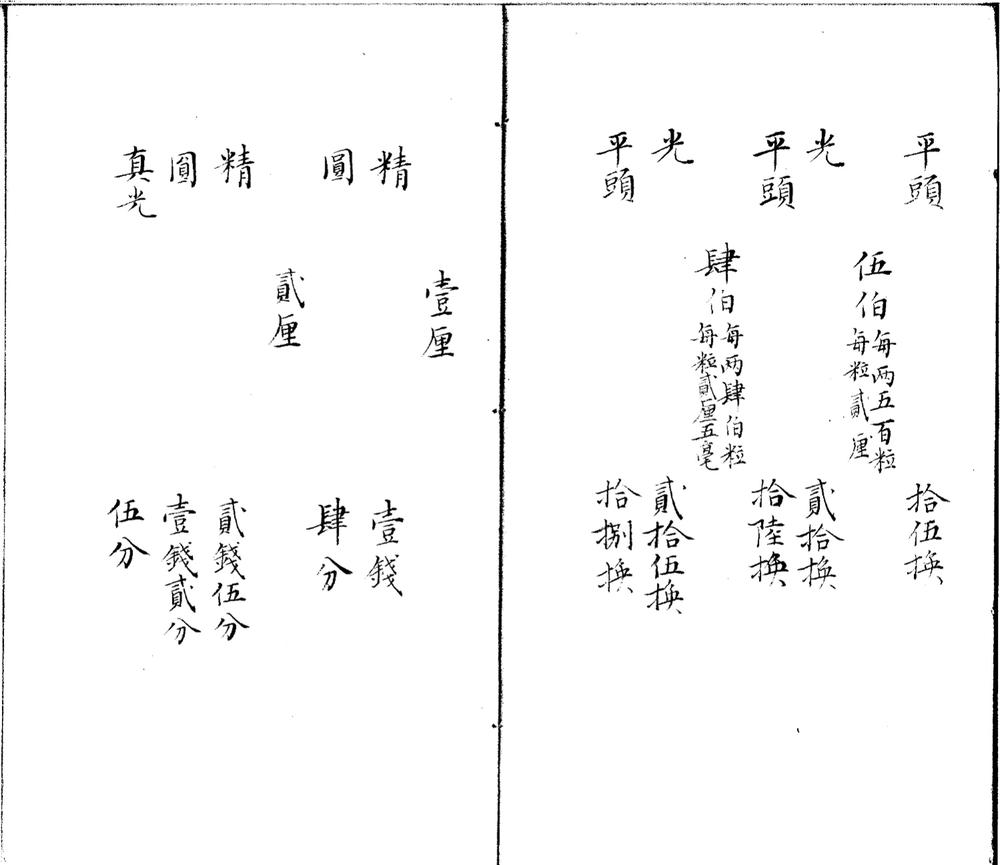 平頭 拾伍換
伍伯每兩五百粒
每粒貳厘
光 貳拾換
平頭 拾陸換
肆伯每兩肆伯粒
每粒貳厘五毫
光 貳拾伍換
平頭 拾捌換
壹厘
精 壹錢
圓 肆分
貳厘
精 貳錢伍分
圓 壹錢貳分
真光 伍分